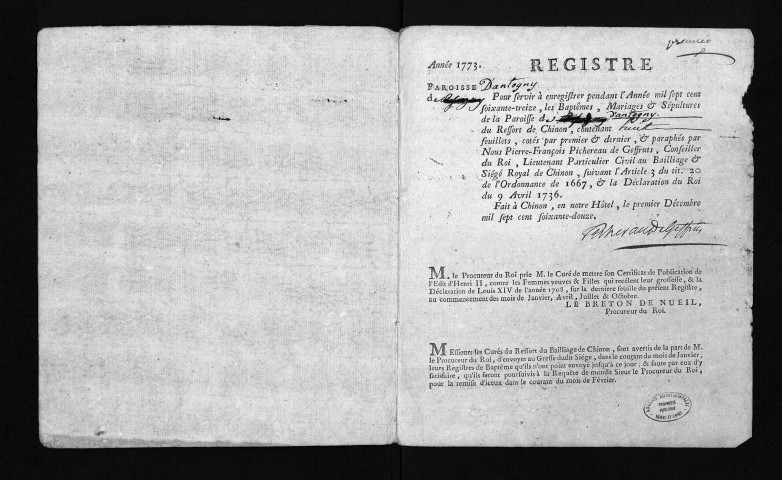 premier
Année 1773.
REGISTRE
PAROISSE Dantogny
de
Pour servir à enregistrer pendant l'Année mil sept cent
soixante-treize, les Baptêmes, Mariages & Sépultures
de la Paroisse d Dantogny
du Ressort de Chinon, contenant huit
feuillets, cotés par premier & dernier, & paraphés par
Nous Pierre-François Pichereau de Geffruts, Conseiller
du Roi, Lieutenant Particulier Civil au Bailliage &
Siége Royal de Chinon, suivant l'Article 3 du tit. 20
de l'Ordonnance de 1667, & la Déclaration du Roi
du 9 Avril 1736.
Fait à Chinon, en notre Hôtel, le premier Décembre
mil sept cent soixante-douze.
Pichereau de Geffruts
M. le Procureur du Roi prie M. le Curé de mettre son Certificat de Publication de
l'Edit d'Henri II, contre les Femmes veuves & Filles qui recélent leur grossesse, & la
Déclaration de Louis XIV de l'année 1708, sur la derniere feuille du présent Registre,
au commencement des mois de Janvier, Avril, Juillet & Octobre.
LE BRETON DE NUEIL,
Procureur du Roi.
MEssieurs les Curés du Ressort du Bailliage de Chinon, sont avertis de la part de M.
le Procureur du Roi, d'envoyer au Greffe dudit Siége, dans le courant du mois de Janvier,
leurs Registres de Baptême qu'ils n'ont point envoyé jusqu'à ce jour; & faute par eux d'y
satisfaire, qu'ils seront poursuivis à la Requête de mondit Sieur le Procureur du Roi,
pour la remise d'iceux dans le courant du mois de Février.
ARCHIVES DÉPARTEMENTALES
PROPRIÉTÉ
PUBLIQUE
INDRE-ET-LOIRE